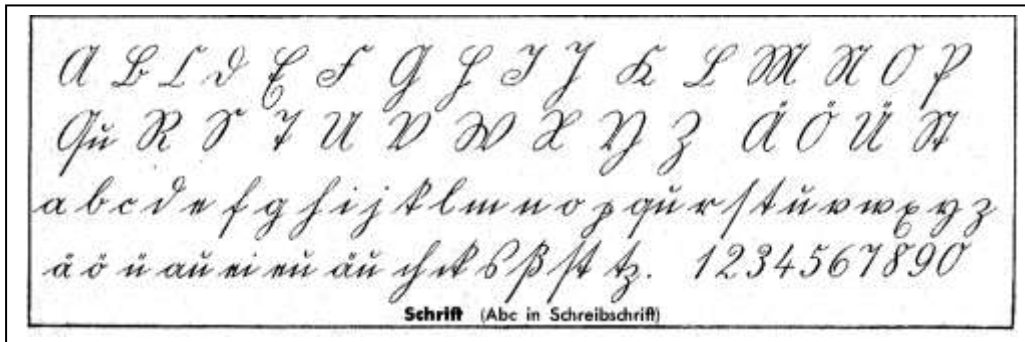 A B C D E F G H I J K L M N O P
Qu R S T U V W X Y Z Ä Ö Ü St
a b c d e f g h i j k l m n o p qu r ſ t u v w x y z
ä ö ü au ei eu äu ch ck s ß ſt tz. 1234567890
Schrift (Abc in Schreibschrift)